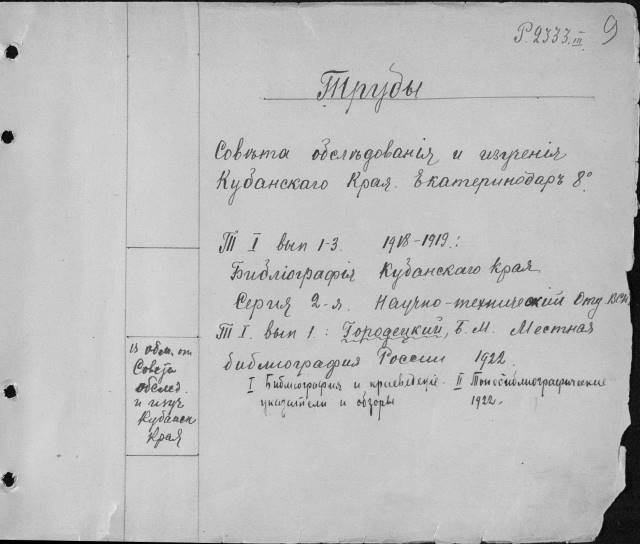 Р.2333.III 9
Труды
Совѣта обслѣдованія и изученія
Кубанскаго Края. Екатеринодаръ 8°
Т I вып 1-3. 1918-1919.:
Библіографія Кубанскаго края
Серия 2-я. Научно-технический Отд ВСНХ
Т I. вып 1: Городецкий, Б. М. Местная
библиография России 1922.
I Библиография и краеведение. II Топобиблиографические
указатели и обзоры 1922.
обл. от
Совета
обслед.
и изуч
Кубанск
Края